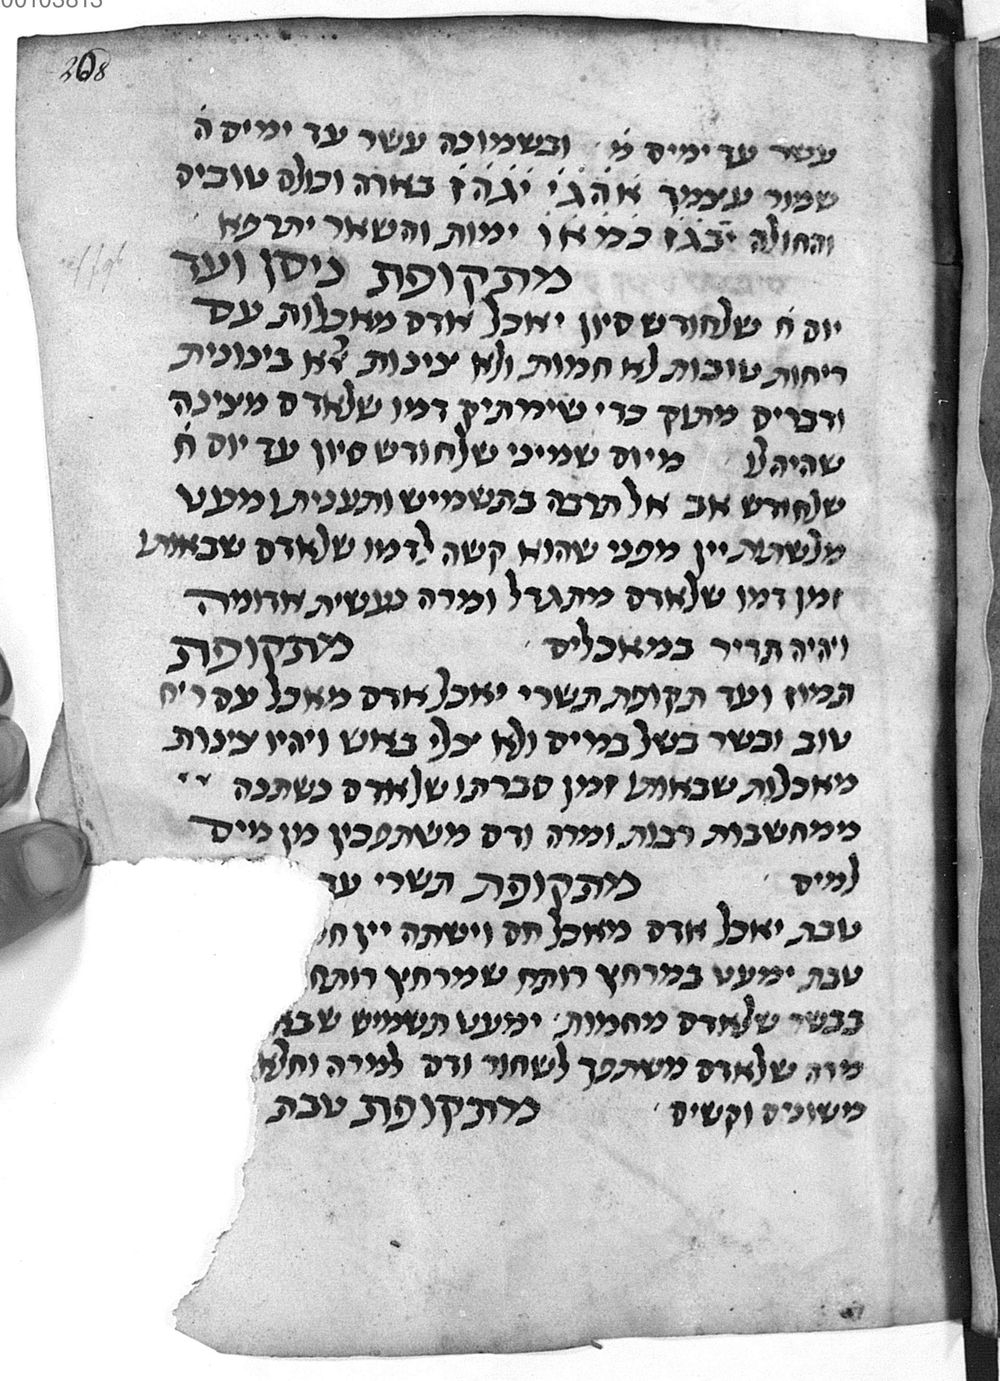 00103813
208
עשר עד ימים מ׳ ובשמונה עשר עד ימים ה׳
שמור עצמך א׳ה׳ג׳י׳ י׳ג׳ה׳ז׳ בארה וכולם טובים
והחולה י׳ב׳ג׳ז׳ כ׳מ׳א׳ו׳ ימות והשאר יתרפא
מתקופת ניסן ועד
יום ח׳ שלחודש סיון יאכל אדם מאכלות עם
ריחות טובות לא חמות ולא צינות אלא בינונית
ודברים מתוק כדי שימתיק דמו שלאדם מצינה
שהיה לו מיום שמיני שלחודש סיון עד יום ח׳
שלחודש אב אל תרבה בתשמיש ותענית ומעט
מלשתות יין מפני שהוא קשה לדמו שלאדם שבאותו
זמן דמו שלאדם מתגדל ומרה נעשית אדומה
ויהיה תדיר במאכלים מתקופת
תמוז ועד תקופת תשרי יאכל אדם מאכל עם ריח
טוב ובשר בשל במים ולא צלי באש ויהיו צינות
מאכלות שבאותו זמן סברתו שלאדם נשתנה
ממחשבות רבות ומרה ודם משתפכין מן מים
למים מתקופת תשרי עד
טבת יאכל אדם מאכל חם וישתה יין
טבת ימעט במרחץ רותח שמרחץ רותח
בבשר שלאדם מחמות ימעט תשמיש
מרה שלאדם משתפך לשחור ודם למרה
משונים וקשים מתקופת טבת